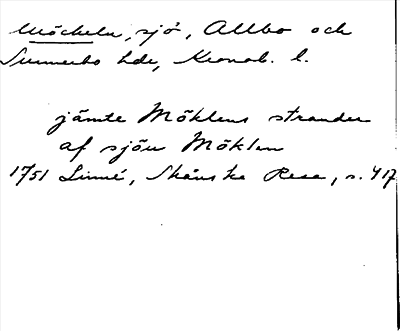 Möckeln, sjö, Allbo och
Sunnerbo hde, Kronob. l.
jämte Möklens strander
af sjön Möklen
1751 Linné, Skånska Resa, s. 417